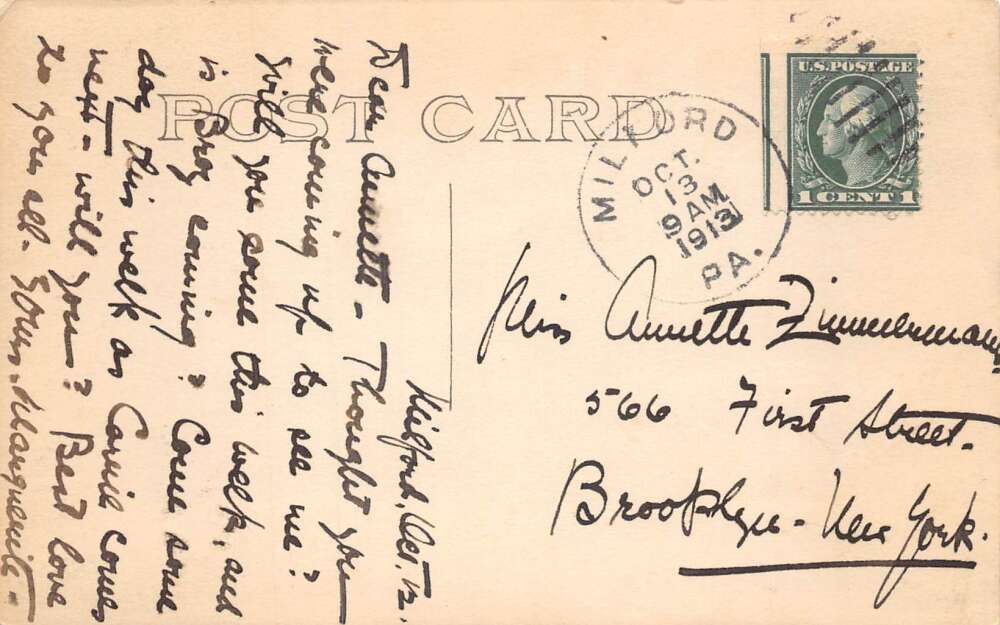 POST CARD
U.S. POSTAGE
1 CENT 1
MILFORD
OCT.
13
9 AM
1913
PA.
Milford, Oct. 12.
Dear Annette - Thought you
were coming up to see me?
Will you come this week, and
is Broz coming? Come some
day this week as Carrie comes
next - will you? Best love
to you all. Yours - Marguerite -
Miss Annette Zimmermann
566 First Street.
Brooklyn - New York.